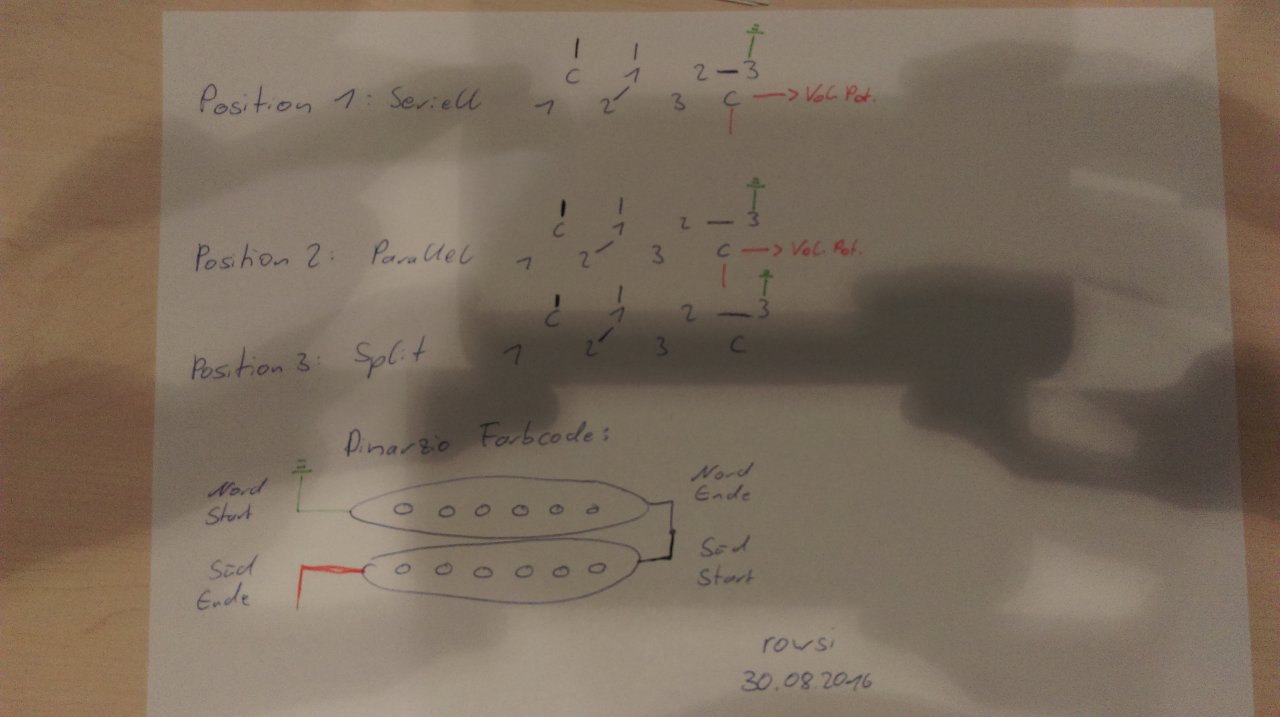 C 1 2 — 3
Position 1: Seriell 1 2 3 C → Vol. Pot.
C 1 2 — 3
Position 2: Parallel 1 2 3 C → Vol. Pot.
C 1 2 — 3
Position 3: Split 1 2 3 C
Dimarzio Farbcode:
Nord
Start
Nord
Ende
Süd
Ende
Süd
Start
rowsi
30.08.2016